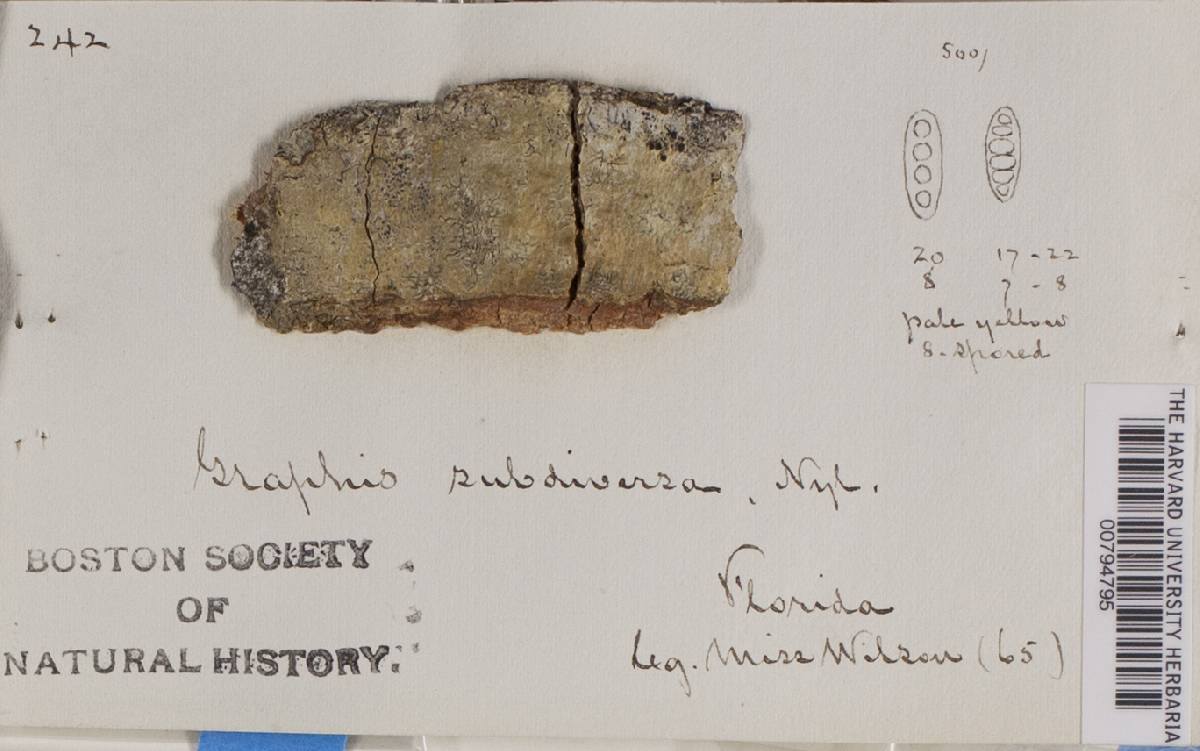 242
500/
20 17-22
8 7-8
pale yellow
8-spored
Graphis subdiversa, Nyl.
BOSTON SOCIETY
OF
NATURAL HISTORY.
Florida
leg. Miss Wilson (65)
THE HARVARD UNIVERSITY HERBARIA
00794795